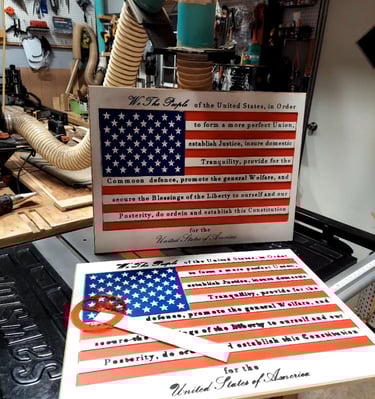 We The People of the United States, in Order
to form a more perfect Union,
establish Justice, insure domestic
Tranquility, provide for the
Common defence, promote the general Welfare, and
secure the Blessings of the Liberty to ourself and our
Posterity, do ordein and establish this Constitution
for the
United States of America
We The People of the United States, in Order
to form a more perfect Union,
establish Justice, insure domestic
Tranquility, provide for the
defence, promote the general Welfare, and
secure the of the Liberty to ourself and our
Posterity, do establish this Constitution
for the
United States of America